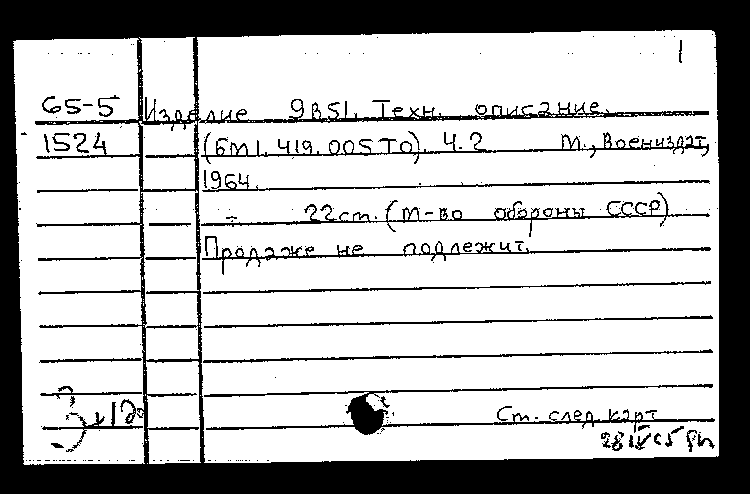 1
65-5 Изделие 9В51. Техн. описание.
1524 (БМ1.419.005ТО). Ч.2 М., Воениздат,
1964.
22см. (М-во обороны СССР)
Продаже не подлежит.
См. след. карт